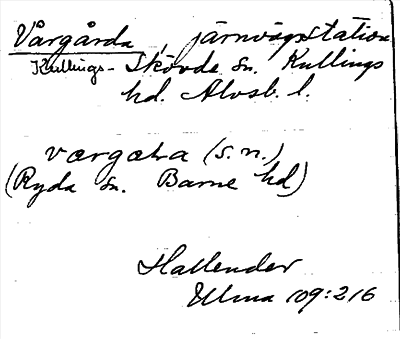 Vårgårda, järnvägsstation
Kullings-Skövde sn. Kullings
hd. Älvsb. l.
værgæra (s.n.)
(Ryda sn. Barne hd)
Hallender
Ulma 109:216